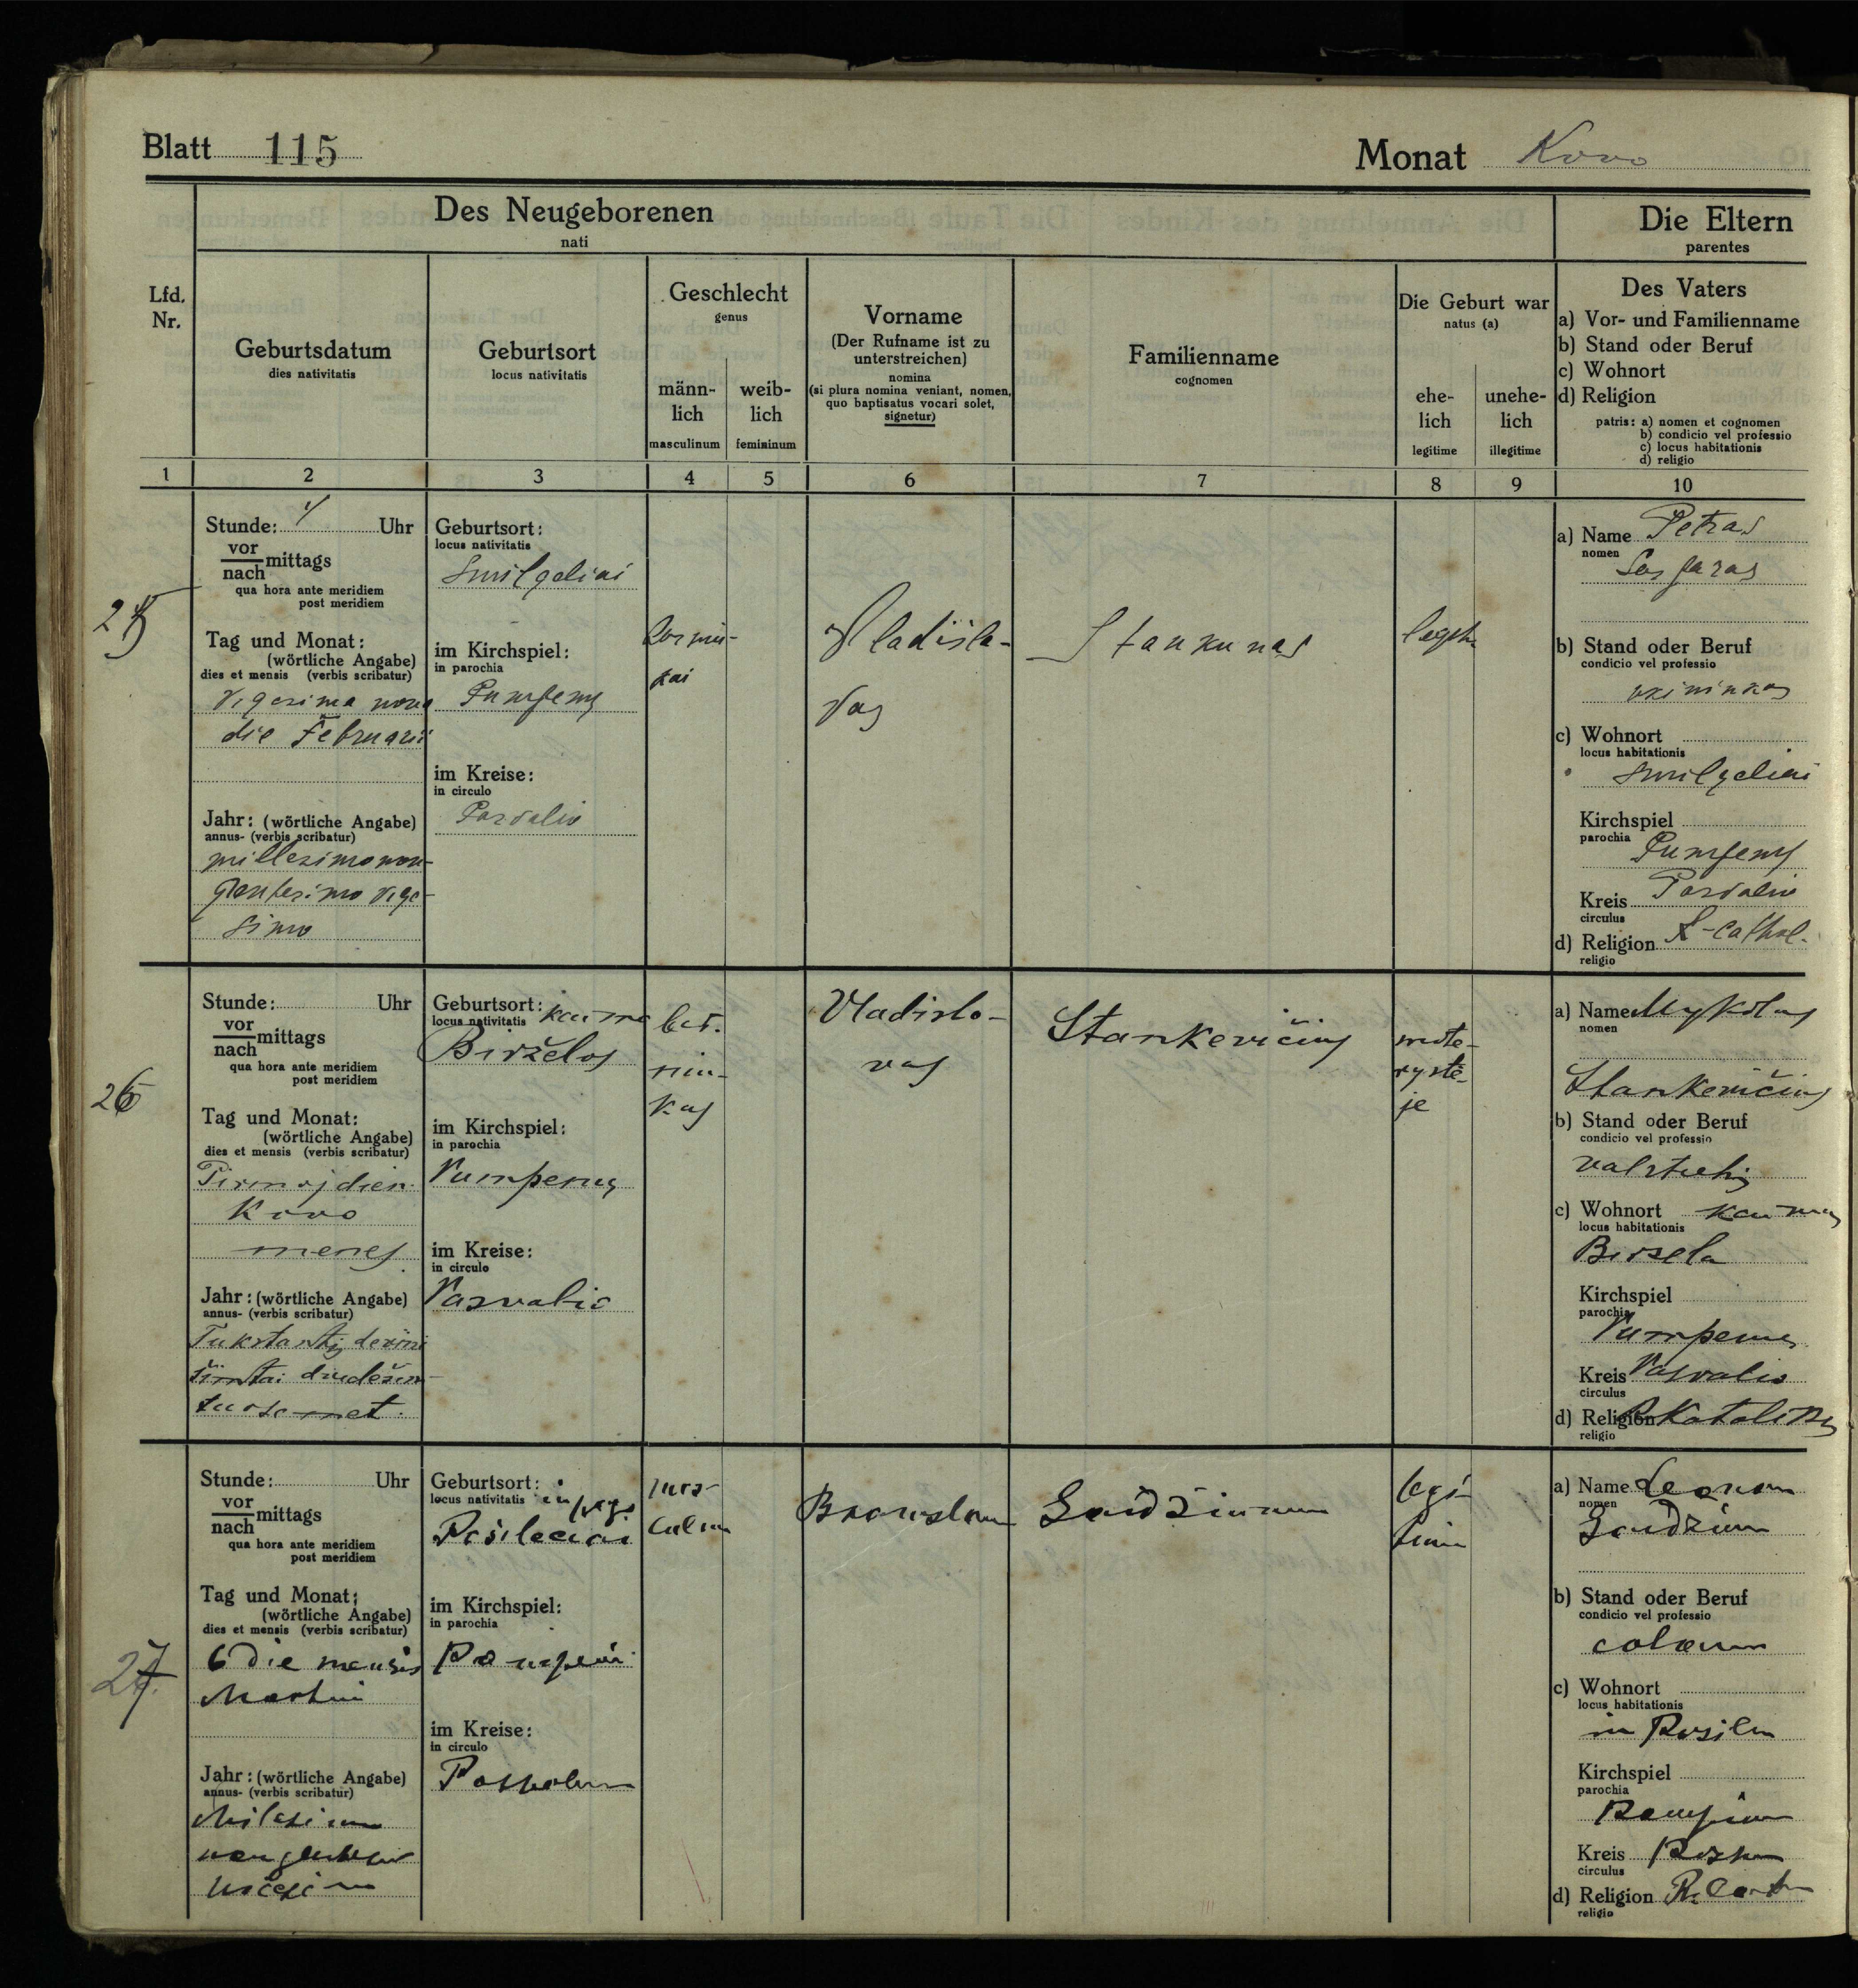 Blatt 115
Monat Kovo
Des Neugeborenen
nati
Die Eltern
parentes
Lfd.
Nr.
Geburtsdatum
dies nativitatis
Geburtsort
locus nativitatis
Geschlecht
genus
männ-
lich
masculinum
weib-
lich
femininum
Vorname
(Der Rufname ist zu
unterstreichen)
nomina
(si plura nomina veniant, nomen,
quo baptisatus vocari solet,
signetur)
Familienname
cognomen
Die Geburt war
natus (a)
ehe-
lich
legitime
unehe-
lich
illegitime
Des Vaters
a) Vor- und Familienname
b) Stand oder Beruf
c) Wohnort
d) Religion
patris: a) nomen et cognomen
b) condicio vel professio
c) locus habitationis
d) religio
1 2 3 4 5 6 7 8 9 10
25
Stunde: Uhr
vor
nach mittags
qua hora ante meridiem
post meridiem
Tag und Monat:
(wörtliche Angabe)
dies et mensis (verbis scribatur)
Vigesima nona
die Februarii
Jahr: (wörtliche Angabe)
annus- (verbis scribatur)
millesimo non-
gentesimo vige-
simo
Geburtsort:
locus nativitatis
Smilgeliai
im Kirchspiel:
in parochia
Pumpenų
im Kreise:
in circulo
Pasvalio
Vladisla-
vas
Stankunas
legit.
a) Name Petras
nomen
b) Stand oder Beruf
condicio vel professio
ukininkas
c) Wohnort
locus habitationis
Smilgeliai
Kirchspiel
parochia
Pumpenų
Kreis Pasvalio
circulus
d) Religion R-Cathol.
religio
26
Stunde: Uhr
vor
nach mittags
qua hora ante meridiem
post meridiem
Tag und Monat:
(wörtliche Angabe)
dies et mensis (verbis scribatur)
Pirmoj dien.
Kovo
menes
Jahr: (wörtliche Angabe)
annus- (verbis scribatur)
Tukstantij devini
šimtai dvidešim-
tuose met.
Geburtsort: kaime
locus nativitatis
Birželos
im Kirchspiel:
in parochia
Pumpenų
im Kreise:
in circulo
Pasvalio
ber.
niu-
kas
Vladislo-
vas
Stankevičius
mote-
rystė-
je
a) Name Mykolas
nomen
Stankevičius
b) Stand oder Beruf
condicio vel professio
valstietis
c) Wohnort kaimas
locus habitationis
Birsela
Kirchspiel
parochia
Pumpenų
Kreis Pasvalio
circulus
d) Religion R Katalikų
religio
27.
Stunde: Uhr
vor
nach mittags
qua hora ante meridiem
post meridiem
Tag und Monat:
(wörtliche Angabe)
dies et mensis (verbis scribatur)
6 Die mensis
Martii
Jahr: (wörtliche Angabe)
annus- (verbis scribatur)
Geburtsort:
locus nativitatis in pago
im Kirchspiel:
in parochia
im Kreise:
in circulo
mas-
culin
legi-
tim
a) Name
nomen
b) Stand oder Beruf
condicio vel professio
c) Wohnort
locus habitationis
in
Kirchspiel
parochia
Kreis
circulus
d) Religion
religio